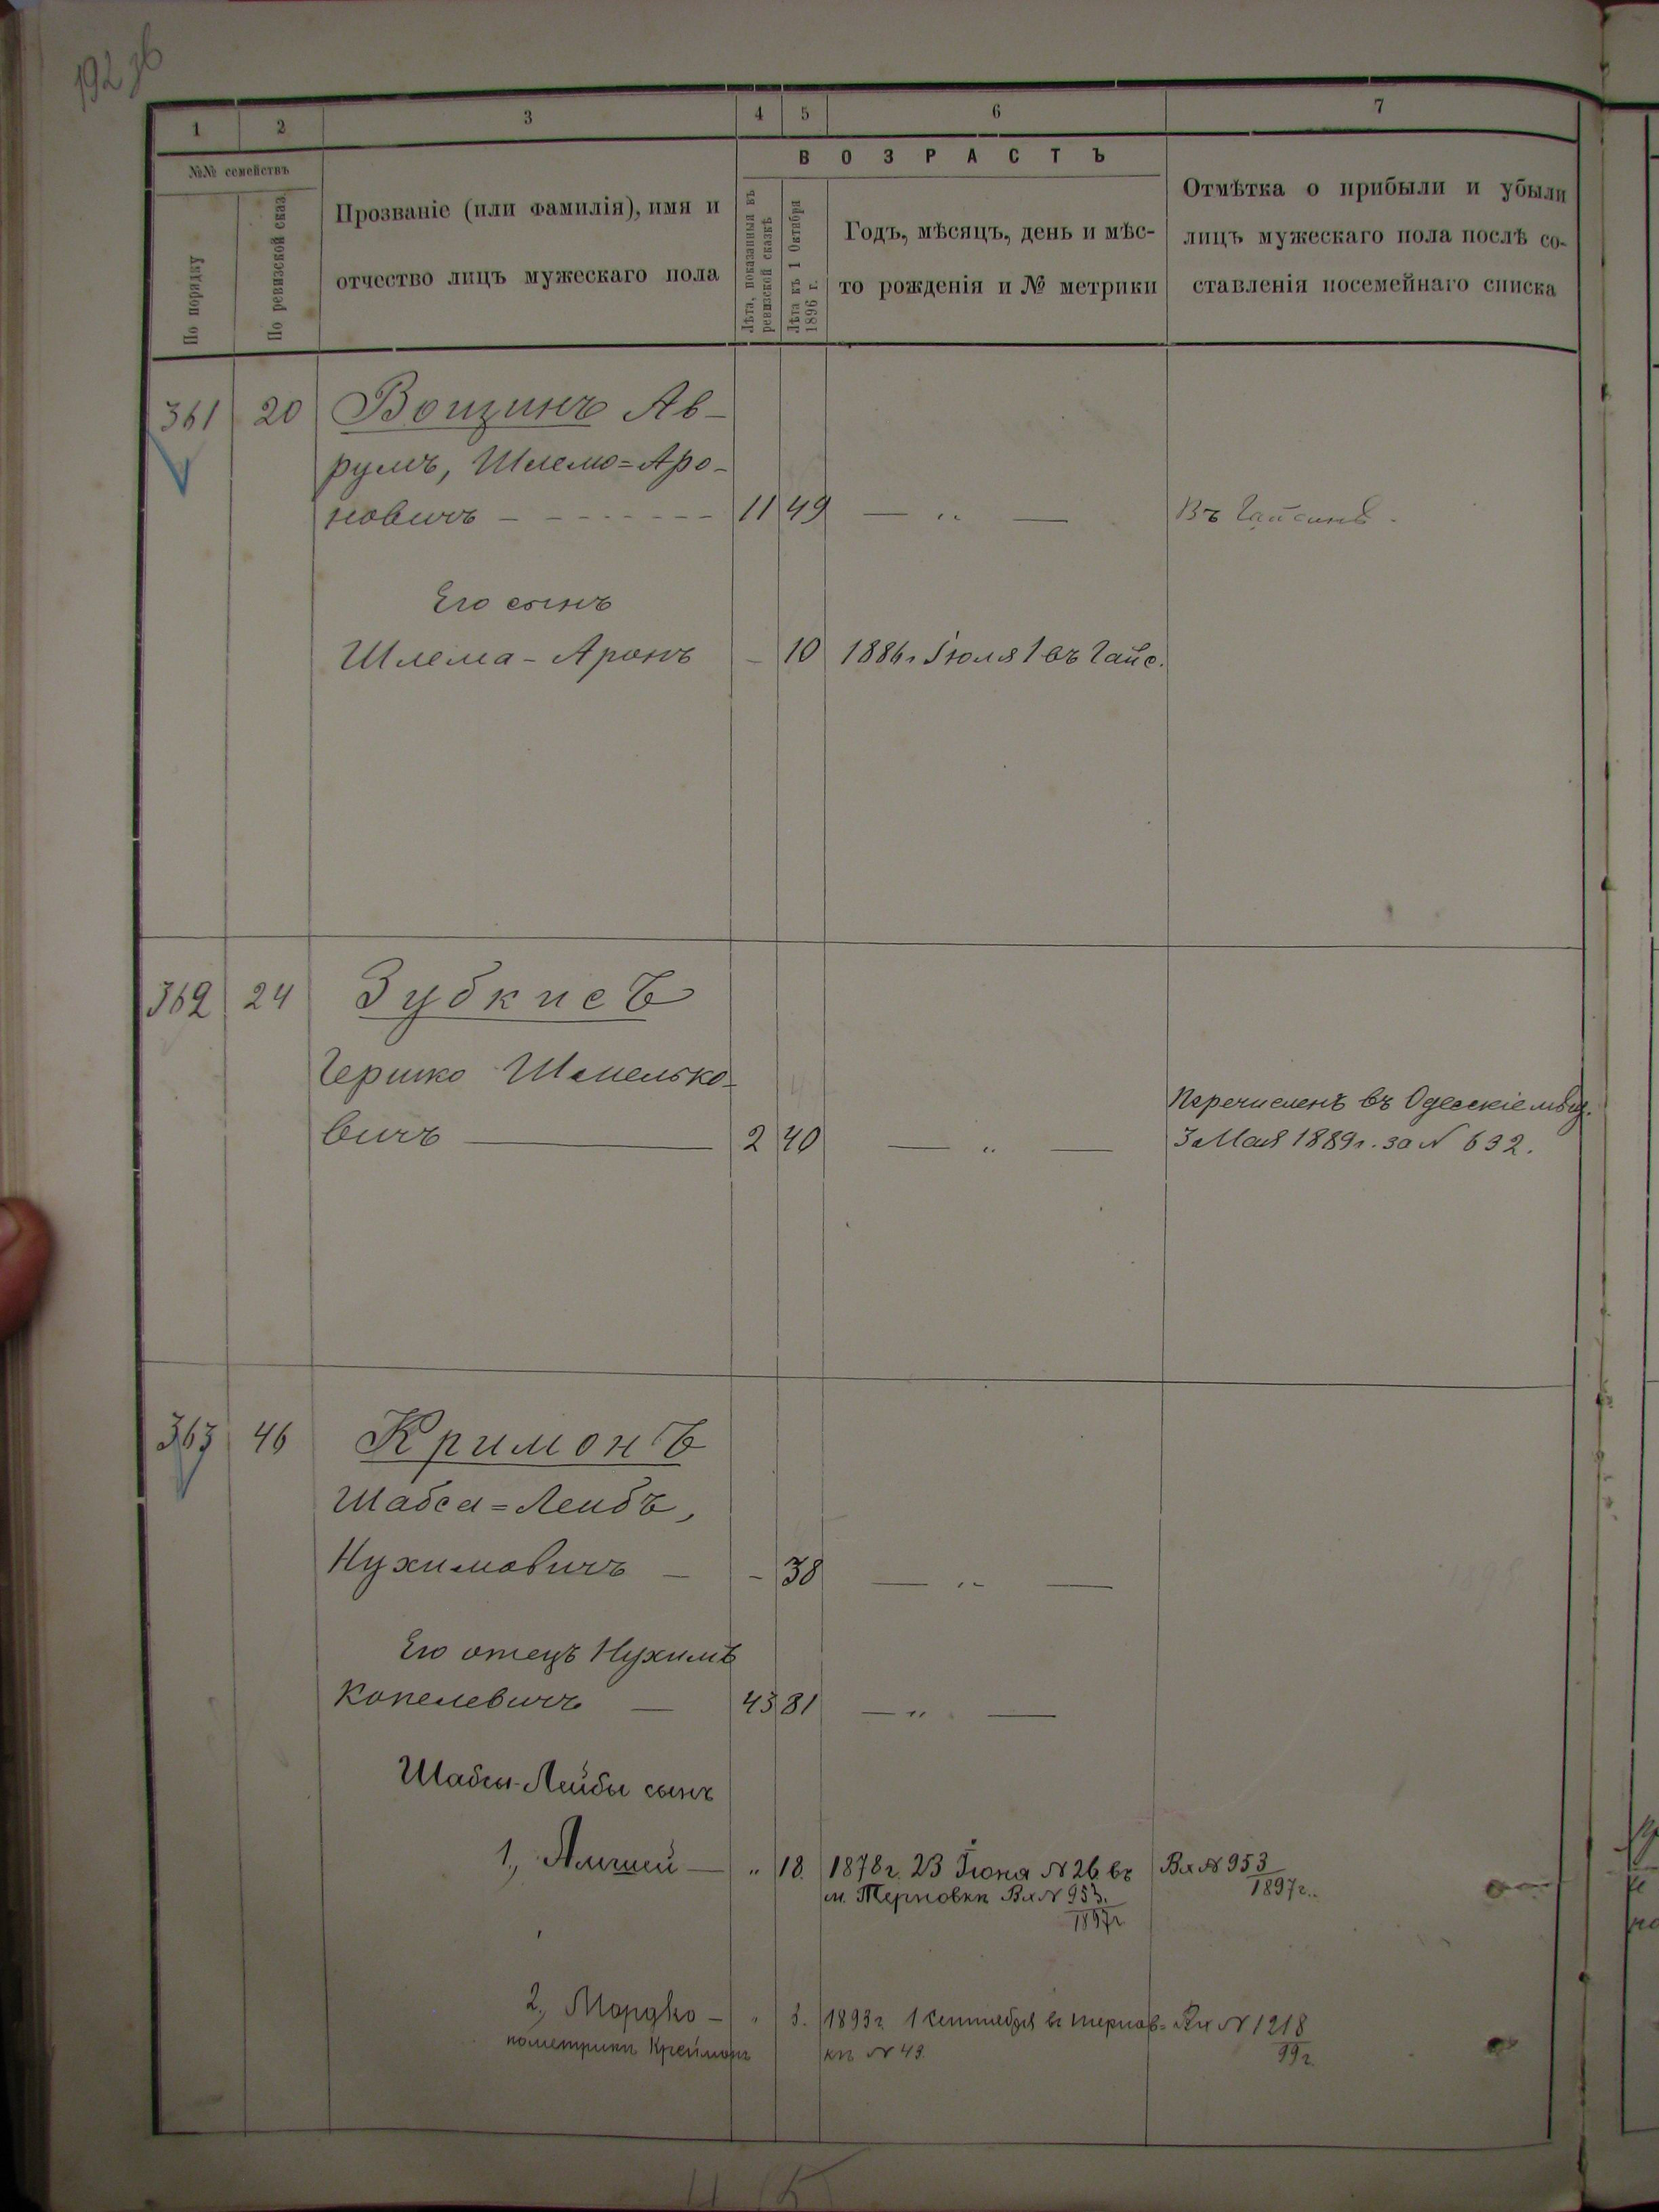 192 зв
1 2 3 4 5 6 7
№№ семействъ
По порядку
По ревизской сказ.
Прозваніе (или фамилія), имя и
отчество лицъ мужескаго пола
ВОЗРАСТЪ
Лѣта, показанныя въ
ревизской сказкѣ
Лѣта къ 1 Октября
1896 г.
Годъ, мѣсяцъ, день и мѣс-
то рожденія и № метрики
Отмѣтка о прибыли и убыли
лицъ мужескаго пола послѣ со-
ставленія посемейнаго списка
361 20 Воцзинъ Ав-
румъ, Шлемо=Аро-
новичъ 11 49 — „ — Въ Гайсинѣ.
Его сынъ
Шлема-Аронъ - 10 1886 г Іюля 1 въ Гайс.
362 24 Зубкисъ
Гершко Шмелько-
вичъ — 2 40 — „ —
Перечисленъ въ Одесскіе мѣщ.
3 Мая 1889 г. за N 632.
363 46 Кримонъ
Шабса=Лейбъ,
Нухимовичъ — - 38 — „ —
Его отецъ Нухимъ
Копелевичъ — 43 81 — „ —
Шабсы-Лейбы сынъ
1, — „ 18. 1878 г. 23 Іюня N 26 въ Вх N 953
м. Терновки Вх N 953. 1897 г.
1897 г
2, Мордко — „ 3. 1893 г 1 Сентября в Тернов- Вх N 1218
пометрики Креймонъ кѣ N 43. 99 г.